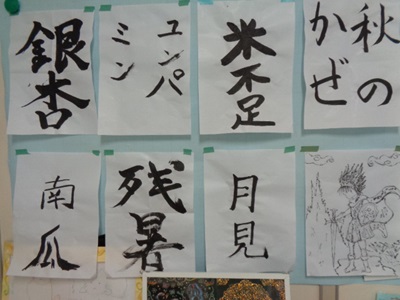 秋の
かぜ
米不足
ユンパ
ミン
銀杏
月見
残暑
南瓜